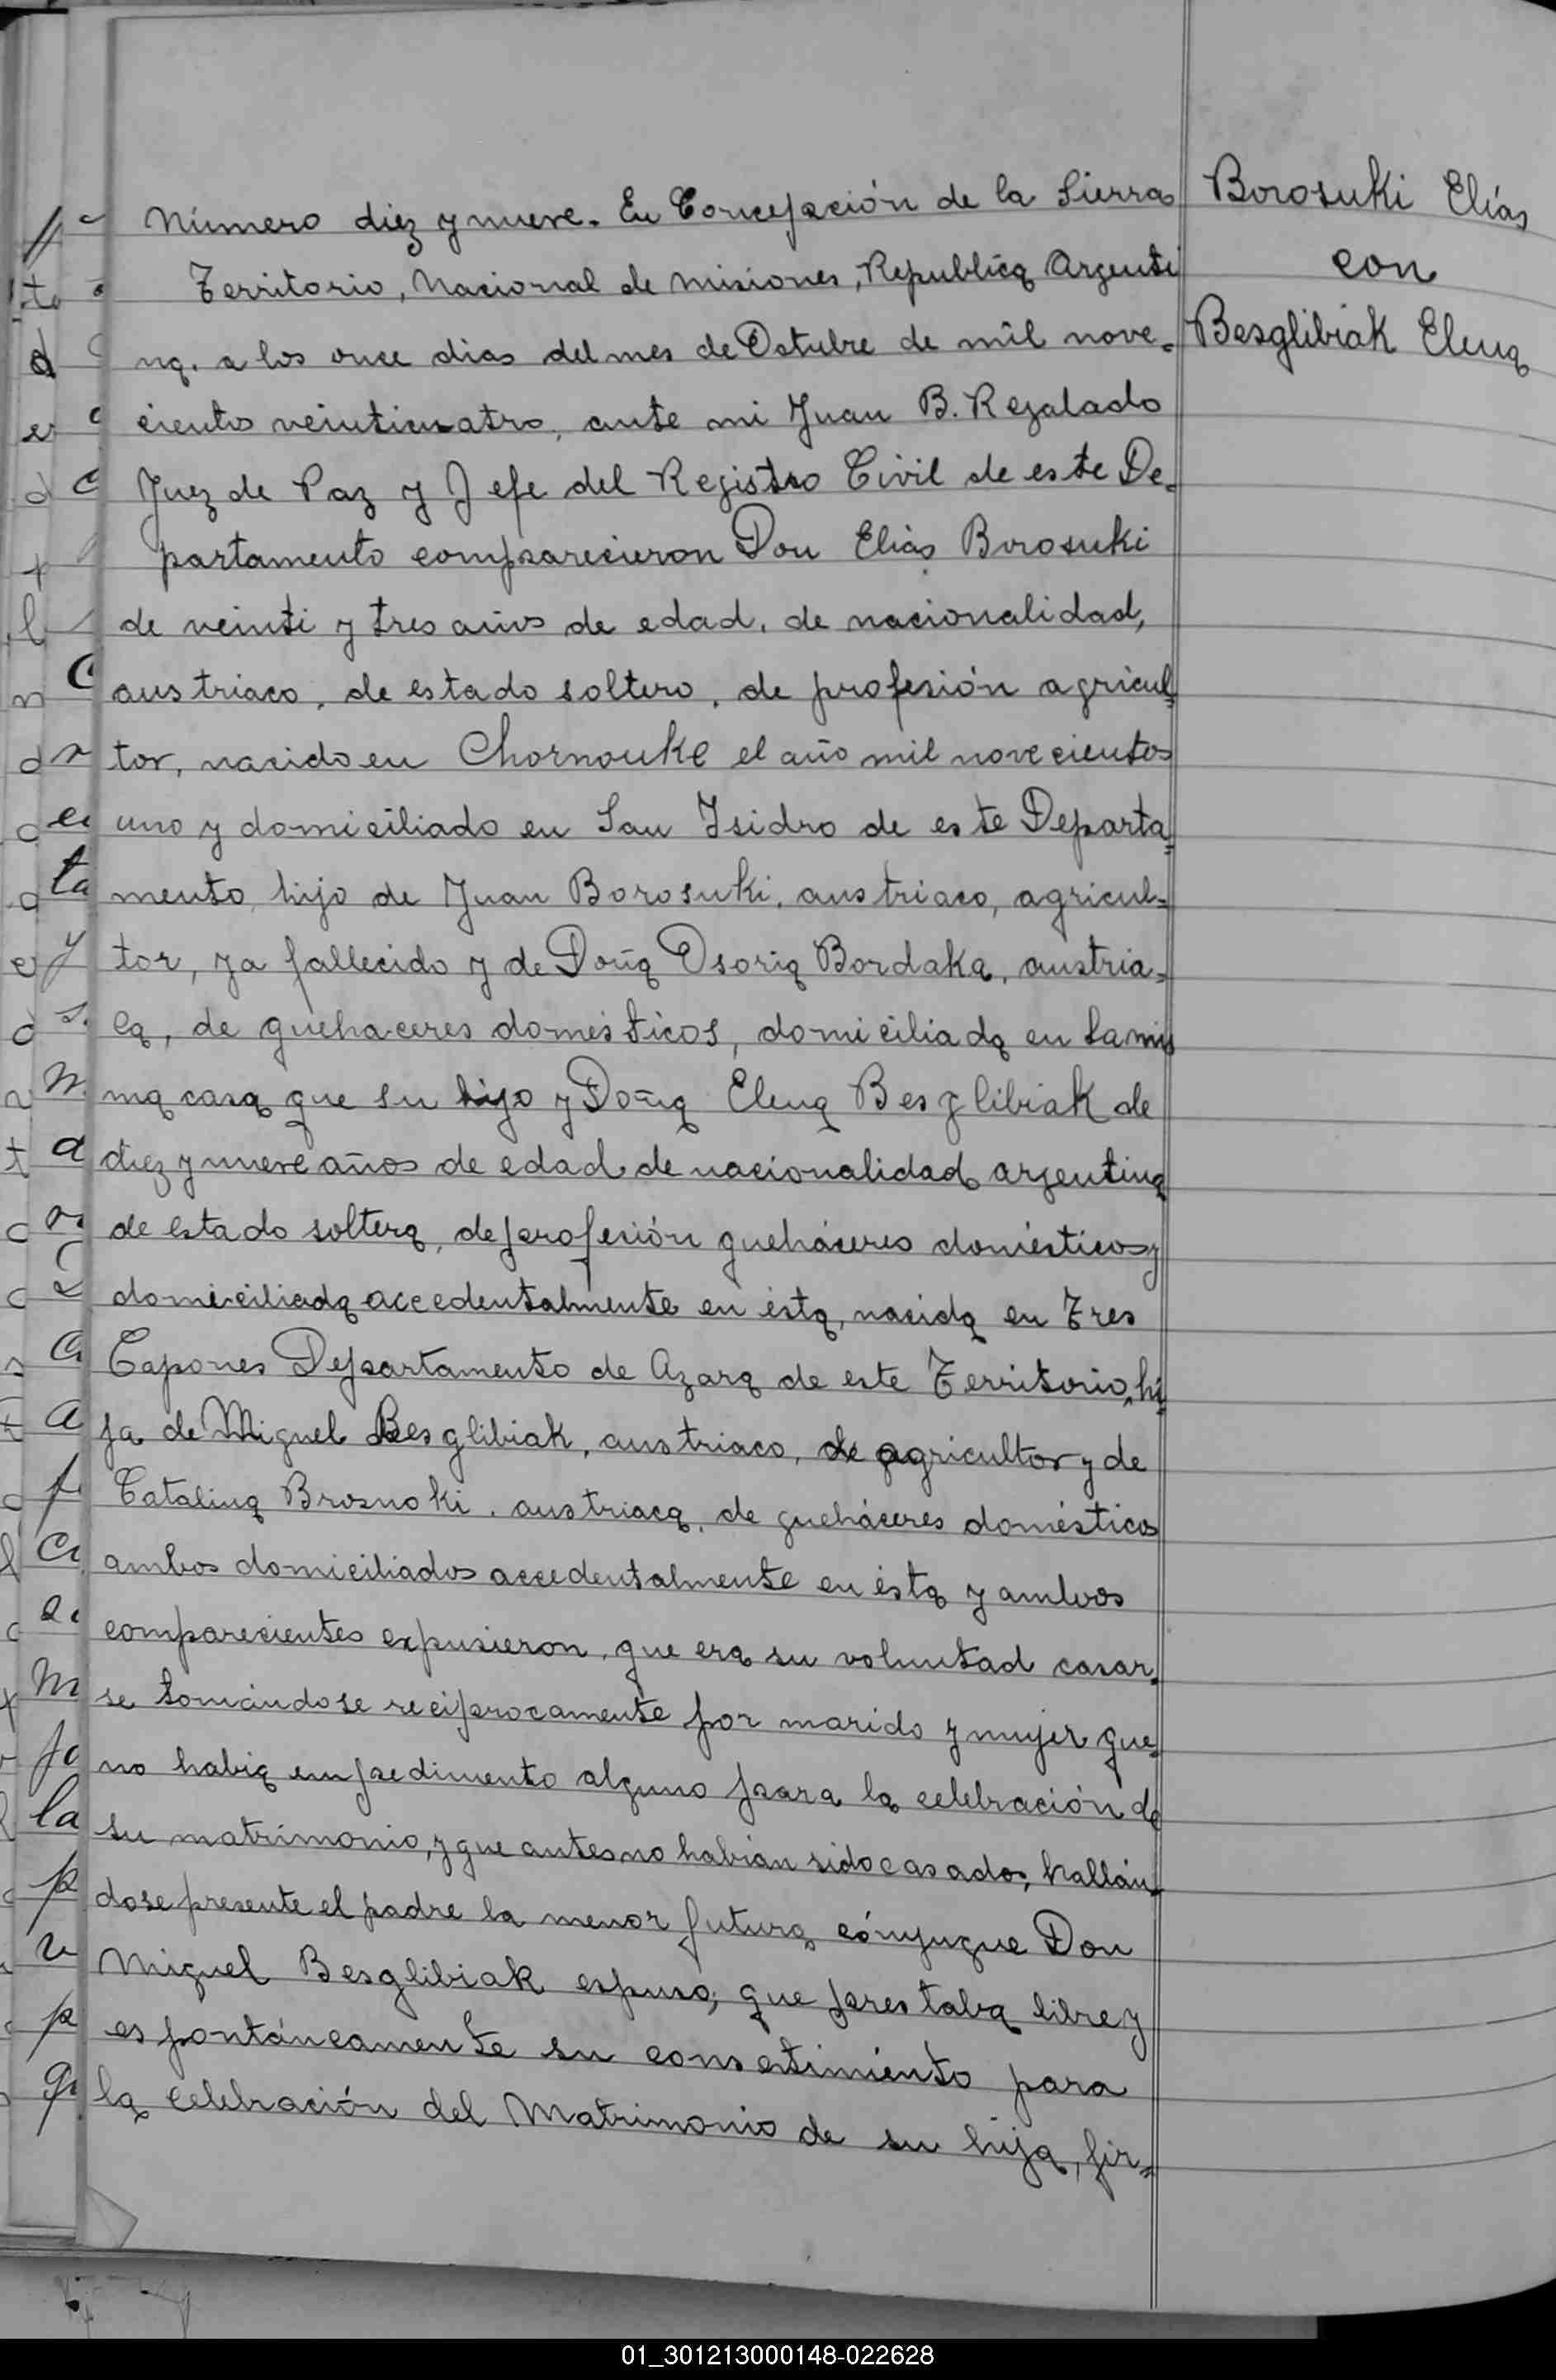 Número diez y nueve. En Concepción de la Sierra
Territorio, Nacional de Misiones, Republica Argenti
na. a los once dias del mes de Octubre de mil nove-
ciento veinticuatro, ante mi Juan B. Regalado
Juez de Paz y Jefe del Registro Civil de este De-
partamento comparecieron Don Elias Borosuki
de veinti y tres años de edad, de nacionalidad,
austriaco, de estado soltero, de profesión agricul-
tor, nacido en Chornouke el año mil novecientos
uno y domiciliado en San Isidro de este Departa-
mento, hijo de Juan Borosuki, austriaco, agricul-
tor, ya fallecido y de Doña Osoria Bordaka, austria-
ca, de quehaceres domésticos, domiciliada en la mis
ma casa que su hijo y Doña Elena Besglibiak de
diez y nueve años de edad de nacionalidad argentina
de estado soltera, de profesión queháceres domésticos y
domiciliada accedentalmente en ésta, nacida en Tres
Capones Departamento de Azara de este Territorio, hi-
ja de Miguel Besglibiak, austriaco, de agricultor y de
Catalina Brosnoki, austriaca, de quehaceres domésticos
ambos domiciliados accedentalmente en ésta y ambos
comparecientes expusieron, que era su voluntad casar-
se tomándose reciprocamente por marido y mujer que
no habia empedimento alguno para la celebración de
su matrimonio, y que antes no habian sido casados, hallán-
dose presente el padre la menor futura cónyugue Don
Miguel Besglibiak espuso, que prestaba libre y
espontáneamente su consentimiento para
la celebración del Matrimonio de su hija, fir-
Borosuki Elías
con
Besglibiak Elena
01_301213000148-022628